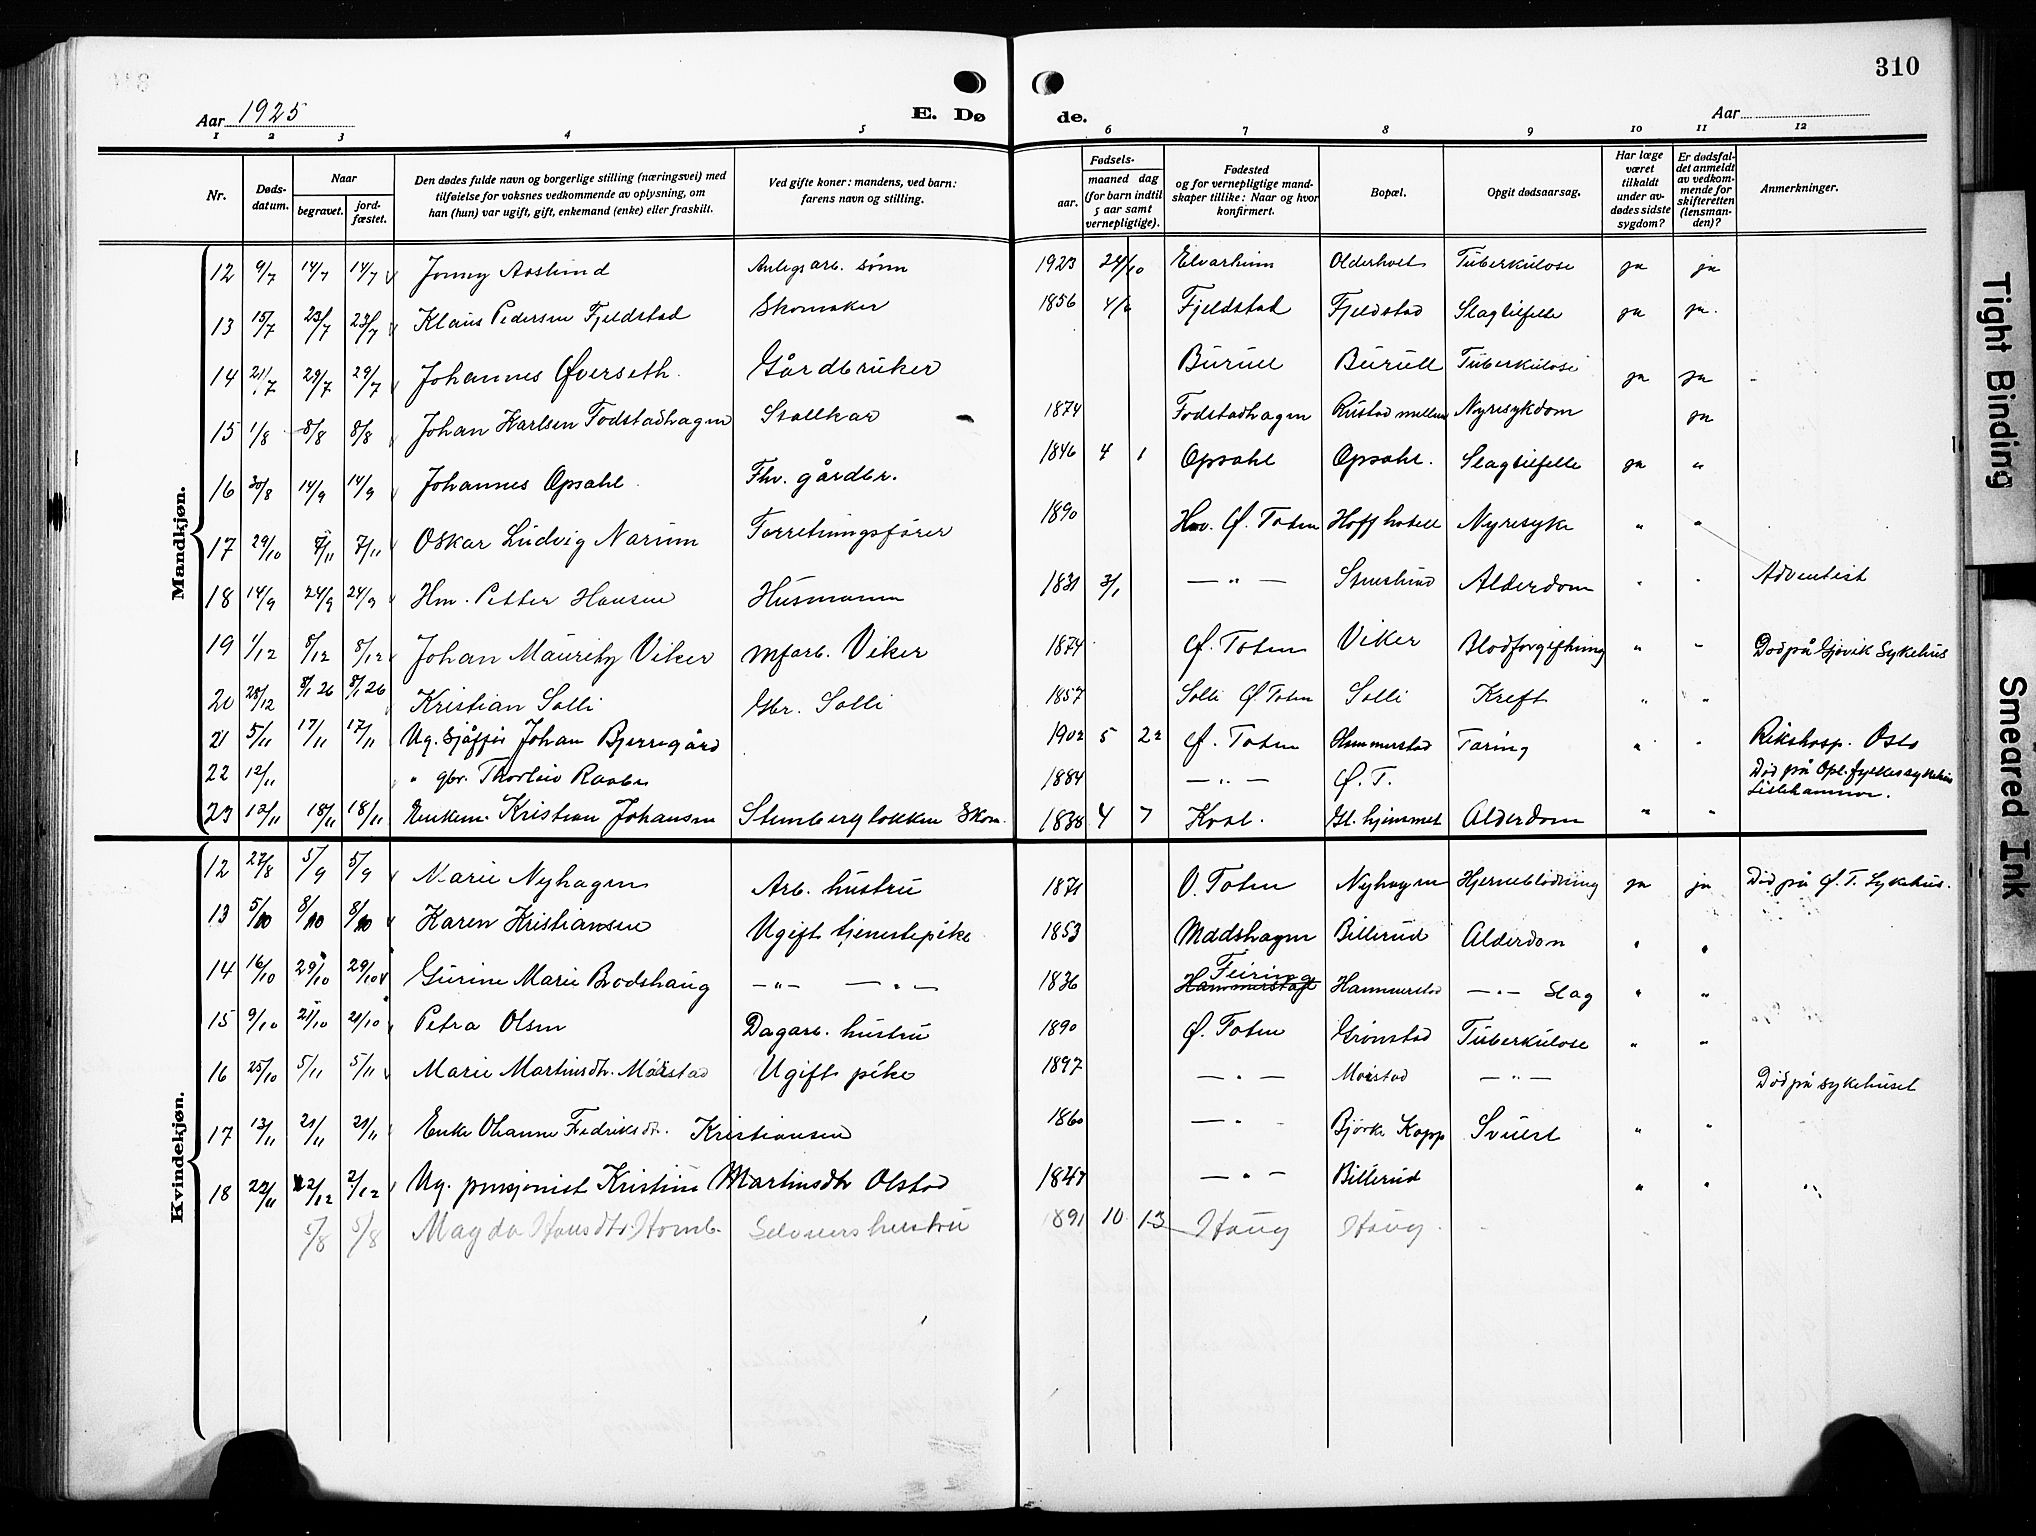 310
Aar 1925
E. Dø de.
Aar
1 2 3 4 5 6 7 8 9 10 11 12
Nr.
Døds-
datum.
Naar
begravet.
jord-
fæstet.
Den dødes fulde navn og borgerlige stilling (næringsvei) med
tilføielse for voksnes vedkommende av oplysning, om
han (hun) var ugift, gift, enkemand (enke) eller fraskilt.
Ved gifte koner: mandens, ved barn:
farens navn og stilling.
Fødsels-
aar.
maaned dag
(for barn indtil
5 aar samt
vernepligtige).
Fødested
og for vernepligtige mand-
skaper tillike: Naar og hvor
konfirmert.
Bopæl.
Opgit dødsaarsag.
Har læge
været
tilkaldt
under av-
dødes sidste
sygdom?
Er dødsfal-
det anmeldt
av vedkom-
mende for
skifteretten
(lensman-
den)?
Anmerkninger.
Mandkjøn.
12 9/7 14/7 14/7 Jonny Aaslund Anlegsarb. sønn 1923 24/10 Elvarheim Olderholt Tuberkulose ja ja
13 15/7 23/7 23/7 Klaus Pedersen Fjeldstad Skomaker 1856 4/6 Fjeldstad Fjeldstad Slagtilfelle ja ja.
14 21/7 29/7 29/7 Johannes Øverseth. Gårdbruker Burull Burull Tuberkulose ja ja
15 1/8 8/8 8/8 Johan Karlsen Todstadhagen Stallkar 1874 Todstadhagen Rustad mellem Nyresykdom ja
16 30/8 14/9 14/9 Johannes Opsahl Fhv. gårdbr. 1846 4 1 Opsahl Opsahl. Slagtilfelle ja "
17 29/10 7/11 7/11 Oskar Ludvig Narum Forretningsfører 1890 Hov. Ø. Toten Hoff hotell Nyresyke " "
18 14/9 24/9 24/9 Hm. Petter Hansen Husmann 1831 3/1 — " — Stenslund Alderdom " " Adventist
19 1/12 8/12 8/12 Johan Mauritz Viker mfarb. Viker 1874 Ø. Toten Viker Blodforgiftning " " Død på Gjøvik Sykehus
20 28/12 8/1 26 8/1 26 Kristian Solli Gbr. Solli 1857 Solli Ø. Toten Solli Kreft " "
21 5/11 17/11 17/11 Ug. sjåffør Johan Bjerregård 1902 5 22 Ø. Toten Hammerstad Tæring " " Rikshosp. Oslo
22 12/11 " gbr. Thorleiv Raabe 1884 — " — Ø. T. Død på Opl. fylkessykehus
Lillehammer.
23 12/11 18/11 18/11 Enkem. Kristian Johansen Stenberglokken Skom. 1838 4 7 Kolb. Gl. hjemmet Alderdom " "
Kvindekjøn.
12 27/8 5/9 5/9 Marie Nyhagen Arb. hustru 1871 V. Toten Nyhagen Hjerneblødning ja ja Død på Ø. T. Sykehus.
13 5/10 8/10 8/10 Karen Kristiansen Ugift tjenestepike 1853 Madshagen Billerud Alderdom " "
14 16/10 29/10 29/10 Gurine Marie Brodshaug — " — — " — 1836 Feiring
Hammerstad Hammerstad — " — Slag " "
15 9/10 21/10 21/10 Petra Olsen Dagarb. hustru 1890 Ø. Toten Grønstad Tuberkulose " "
16 25/10 5/11 5/11 Marie Martinsdtr. Mørstad Ugift pike 1897 — " — Mørstad — " — Død på sykehuset
17 13/11 21/11 21/11 Enke Ohanne Fredriksdtr. Kristiansen 1860 — " - Bjørke Kapp Svulst " "
18 22/11 2/12 2/12 Ug. pensjonist Kristine Martinsdtr Olstad 1847 — " — Billerud " "
5/8 5/8 Magda Hansdtr. Homb. Selveiers hustru 1891 10 13 Haug Haug.
Tight Binding
Smeared Ink